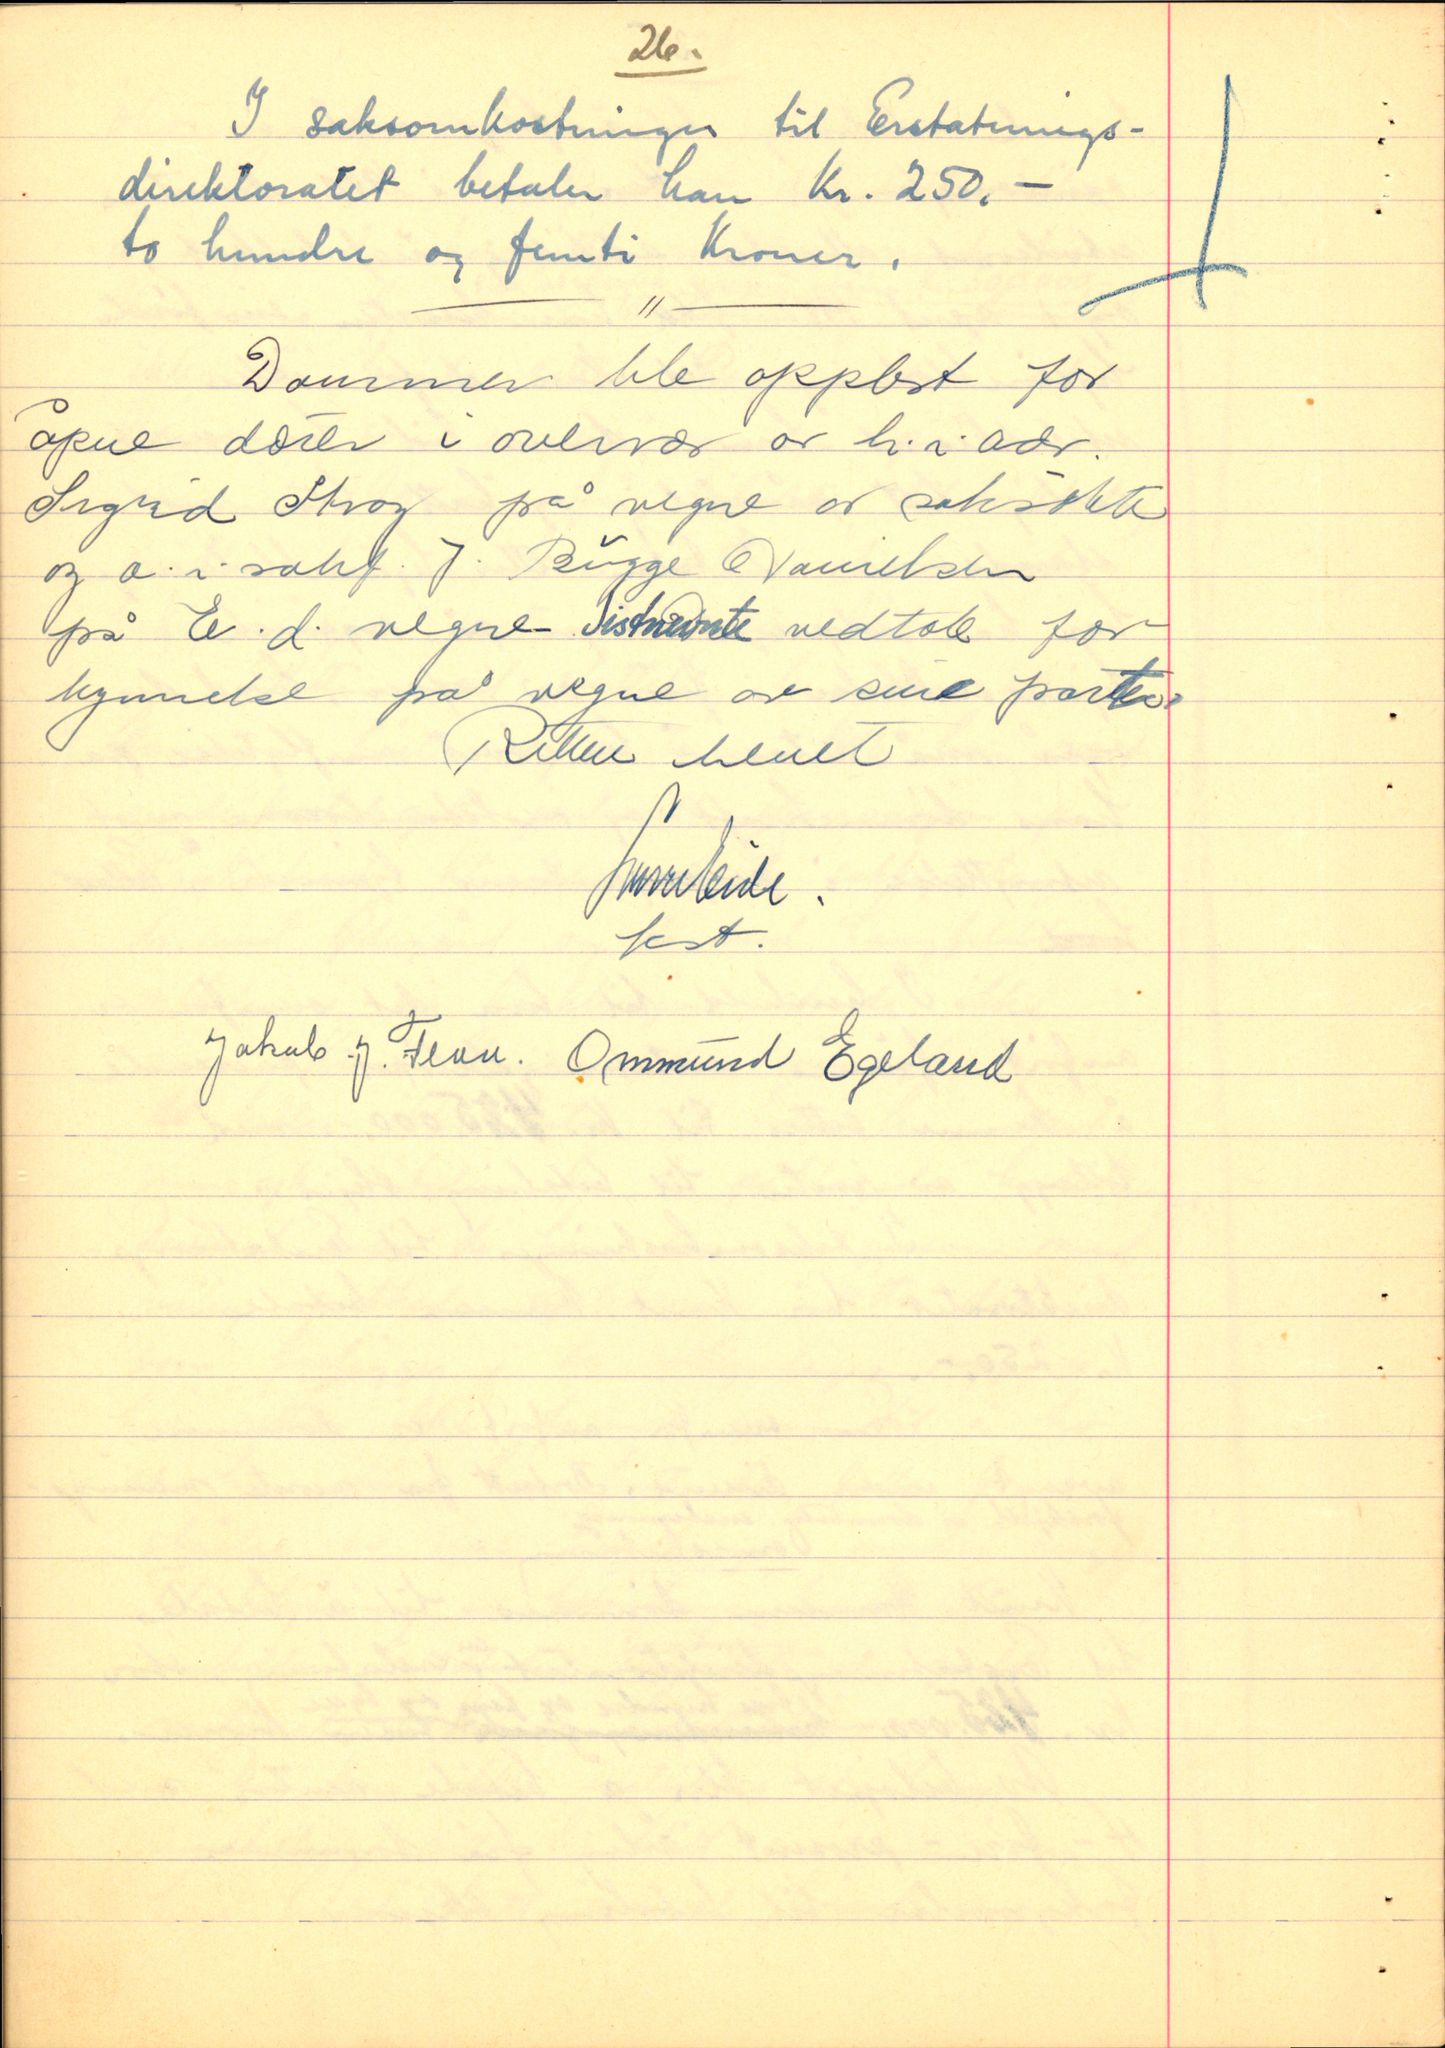 26.
I saksomkostninger til Erstatnings-
direktoratet betaler han Kr. 250.-
to hundre og femti Kroner.
"
Dommen ble opplest for
åpne dører i overvær av h.r.adv.
Sigrid Stray på vegne av saksøkte
og o.r.sakf. J. Bugge Danielsen
på E.d. vegne Sistnevnte vedtok for
kynnelse på vegne av sine parter.
Retten hevet
fast.
Jakob J. Ommund Egeland